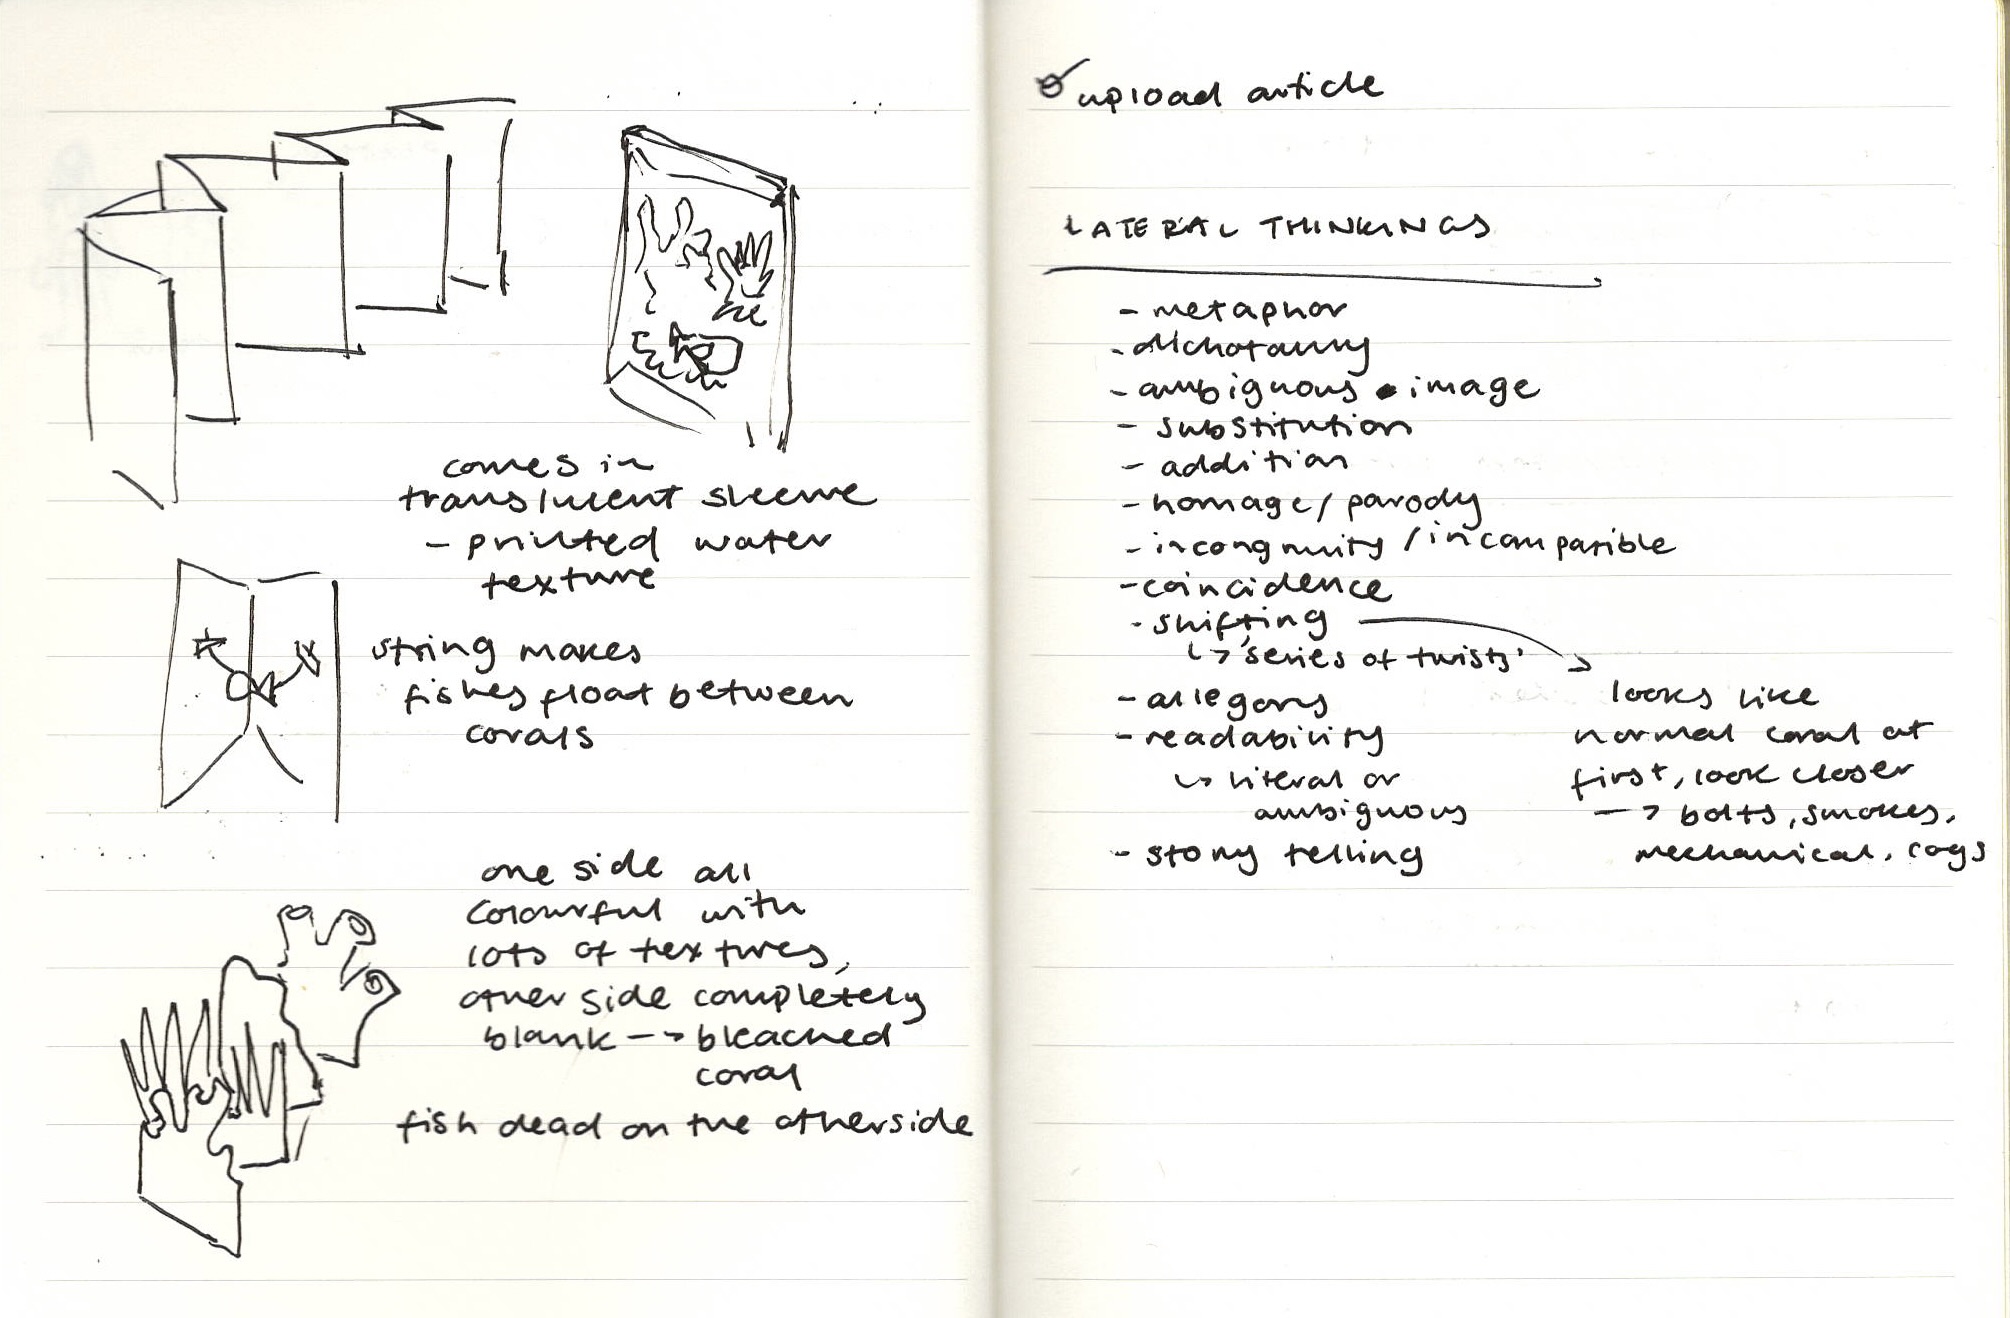 comes in
translucent sleeve
- printed water
texture
string makes
fishes float between
corals
one side all
colourful with
lots of textures,
other side completely
blank --> bleached
coral
fish dead on the otherside
upload article
LATERAL THINKINGS
- metaphor
- dichotomy
- ambiguous image
- substitution
- addition
- homage / parody
- incongruity / incompatible
- coincidence
- shifting
↳ 'series of twists'
- allegory
- readability
↳ literal or
ambiguous
- story telling
looks like
normal coral at
first, look closer
--> bolts, smokes,
mechanical, cogs